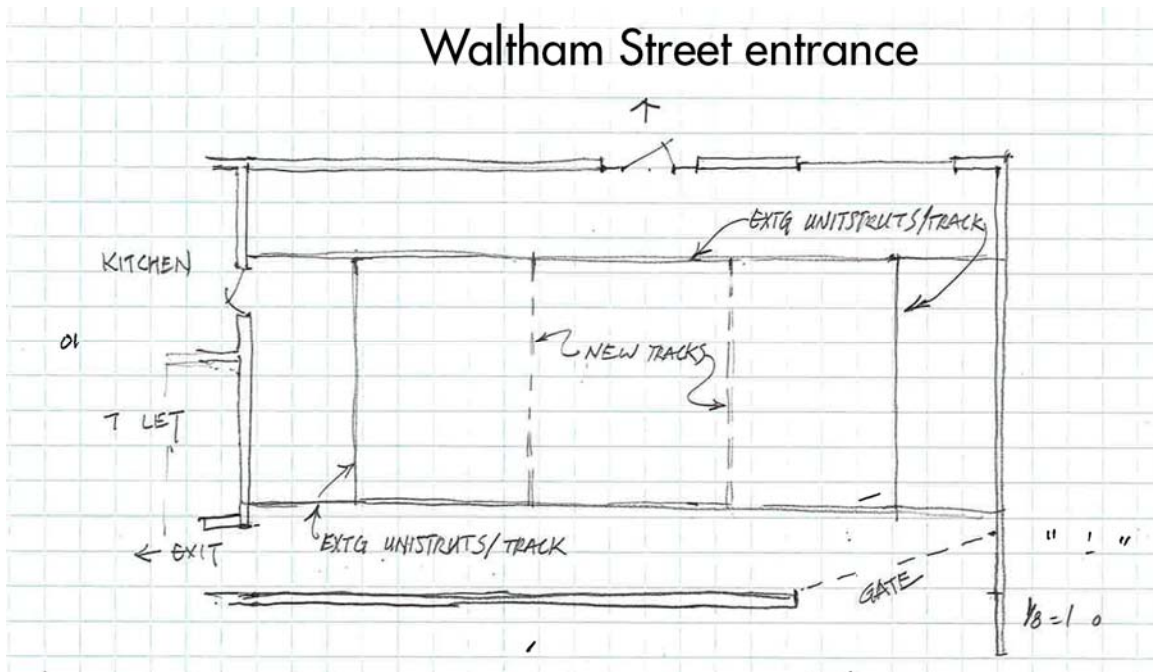 Waltham Street entrance
EXTG UNITSTRUTS/TRACK
KITCHEN
NEW TRACKS
T LET
← EXIT
EXTG UNISTRUTS/TRACK
GATE
" ' "
1/8=1 0